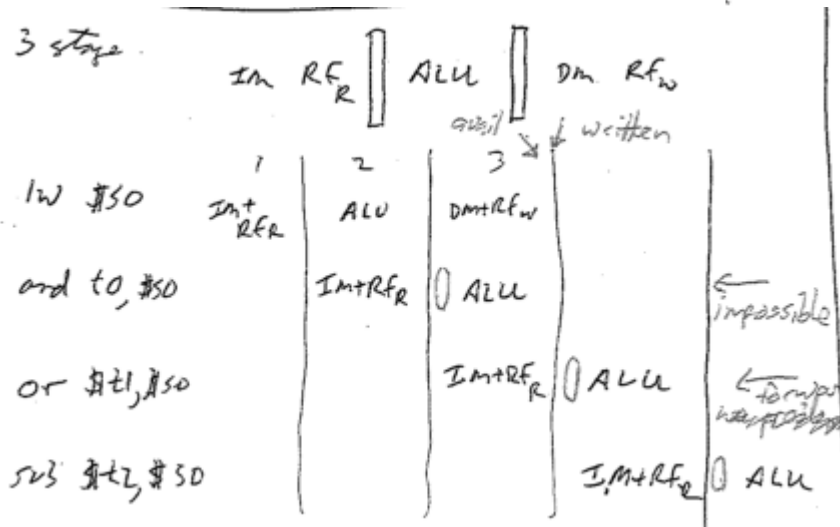 3 stage
Im RF R ALU Dm RFw
avail written
1 2 3
lw $s0 Im+ RFR ALU Dm+RFw
and t0, $s0 Im+RFR ALU
impossible
or $t1, $s0 Im+RFR ALU
sub $t2, $s0 I,M+RFR ALU